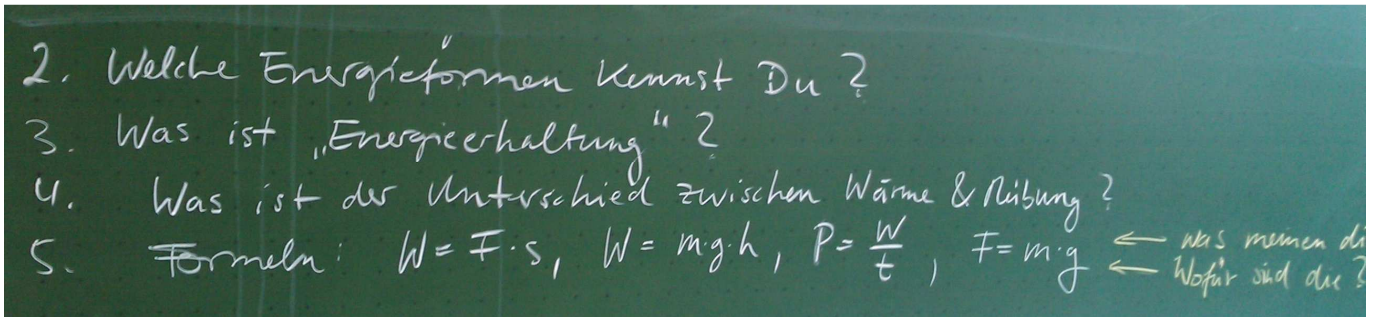 2. Welche Energieformen kennst Du?
3. Was ist „Energieerhaltung“?
4. Was ist der Unterschied zwischen Wärme & Reibung?
5. Formeln: W = F·s, W = m·g·h, P = W/t, F = m·g ← was meinen di
← Wofür sind die?